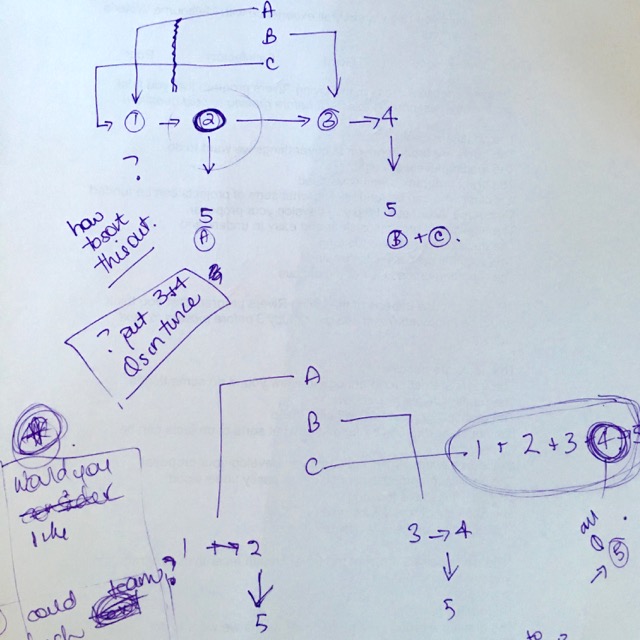 A
B
C
1 → 2 → 3 → 4
?
5 5
A B + C.
how
to sort
this out.
? put 3+4
Qs on twice
A
B
C 1 + 2 + 3 + 4 + 5
would you
like
all
Q 5
1 → 2 3 → 4
?
team
could
5 5
to